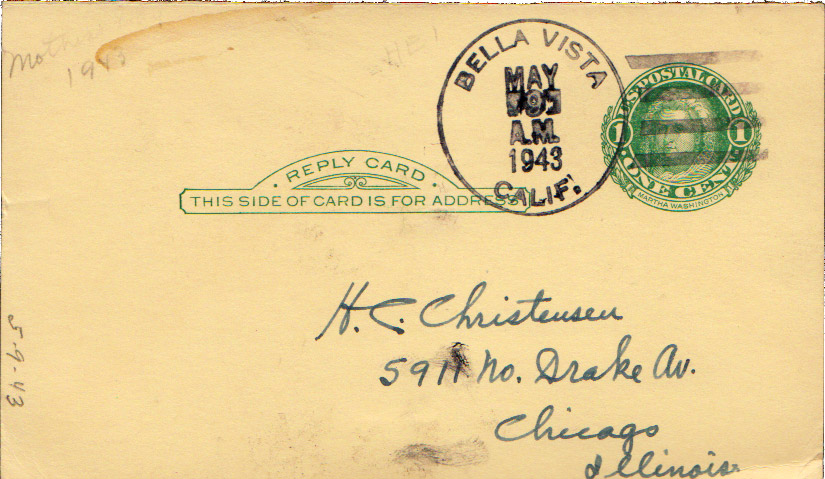 Mother
1943
BELLA VISTA
MAY
9
A.M.
1943
CALIF.
U.S. POSTAL CARD
1 1
ONE CENT
MARTHA WASHINGTON
REPLY CARD
THIS SIDE OF CARD IS FOR ADDRESS
H. C. Christensen
5911 No. Drake Av.
Chicago
Illinois
5-9-43